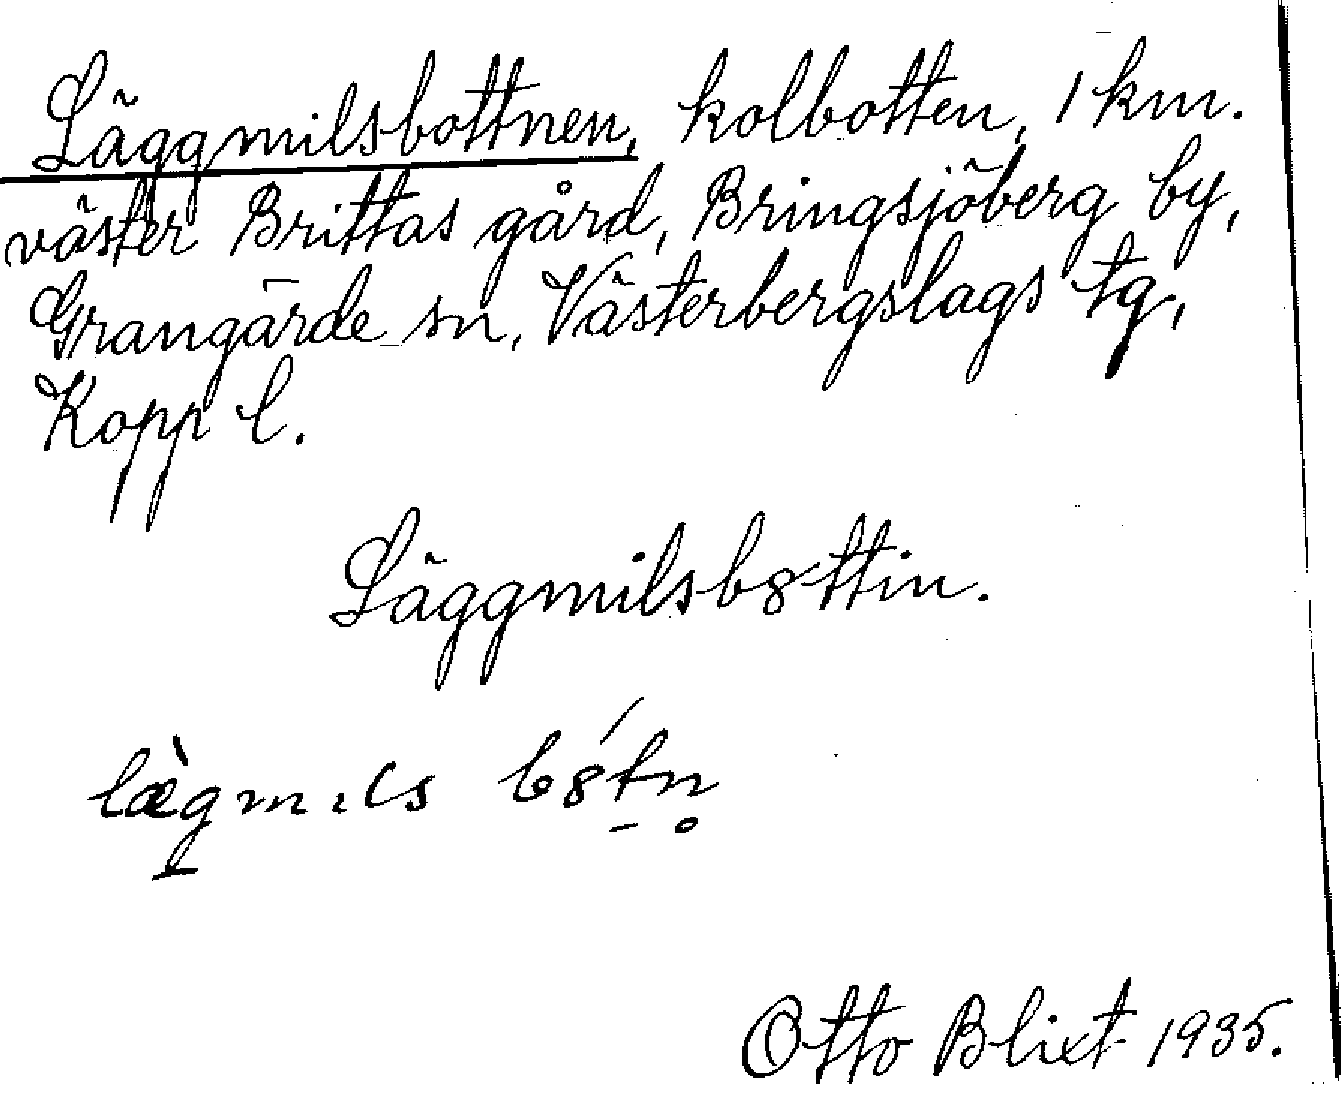 Läggmilsbottnen, kolbotten, 1 km.
väster Brittas gård, Bringsjöberg by,
Grangärde sn, Västerbergslags tg,
Kopp l.
Läggmilsb8ttin.
lægmıls b8́tn̥
Otto Blixt 1935.